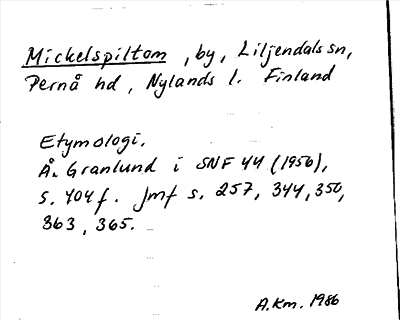 Mickelspiltom, by, Liljendals sn,
Pernå hd, Nylands l. Finland
Etymologi.
Å. Granlund i SNF 44 (1956),
s. 404 f. Jmf s. 257, 344, 350,
363, 365.
A.Km. 1986